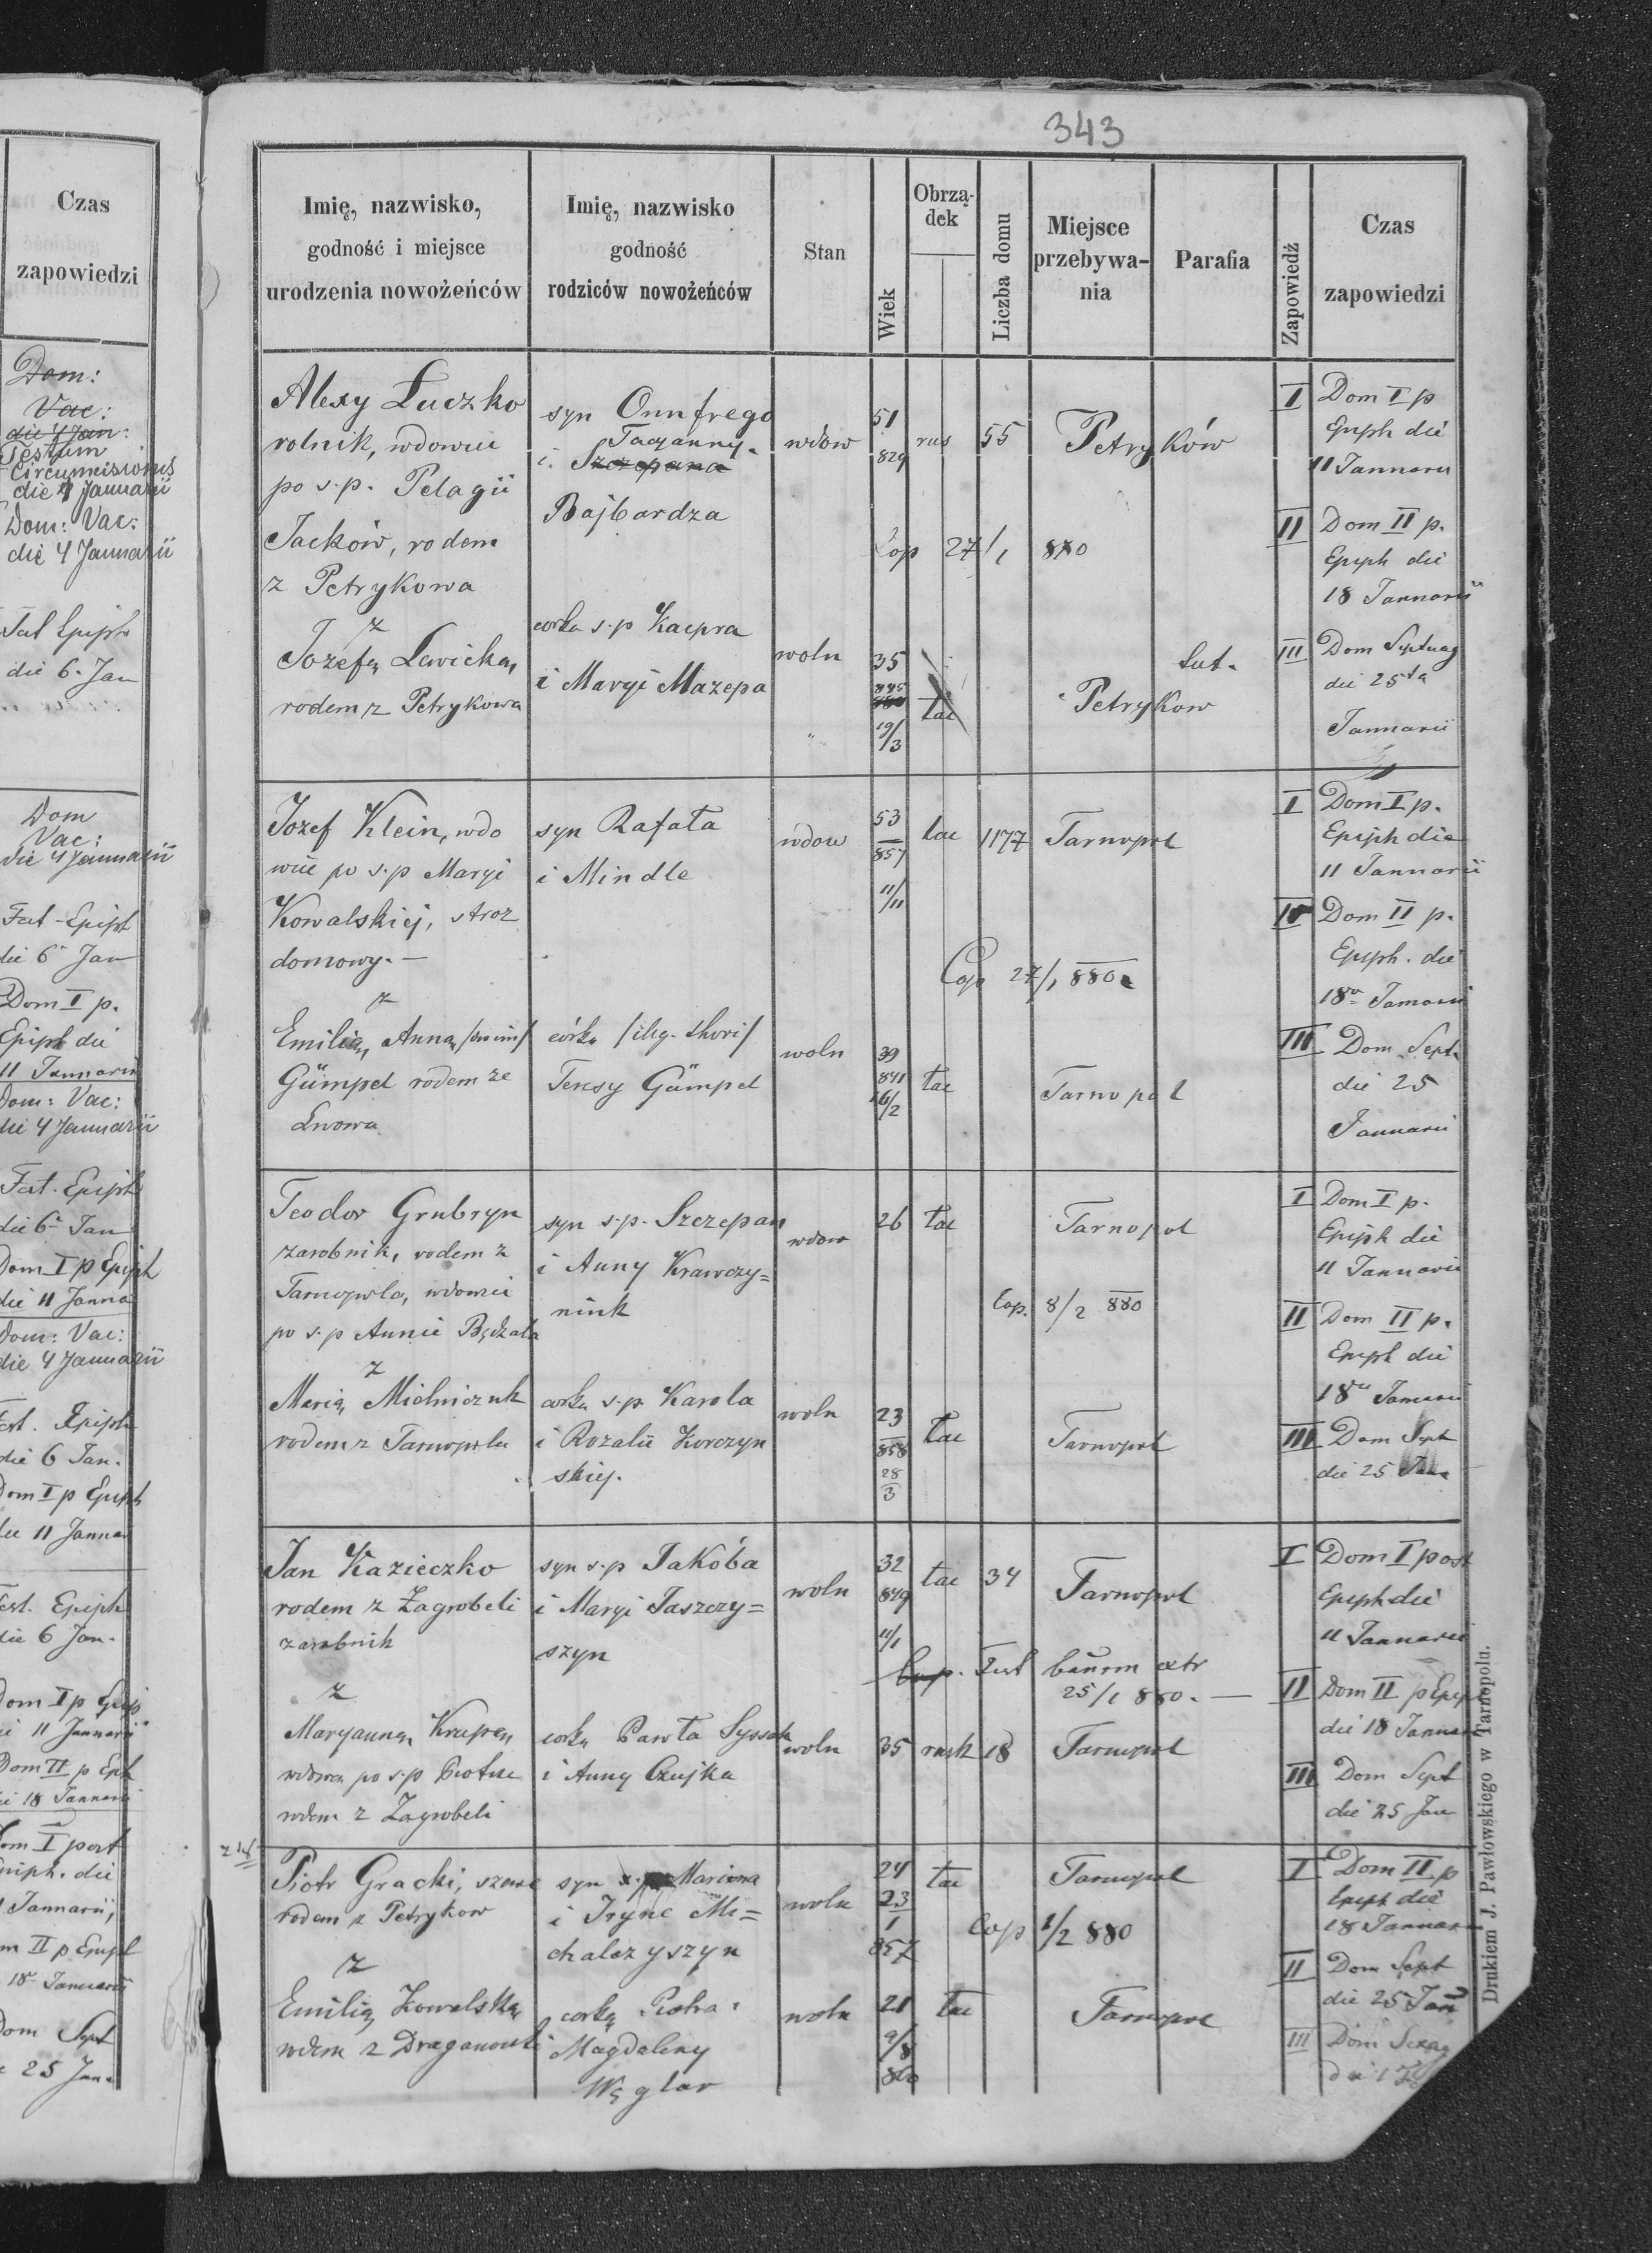 343
Czas
zapowiedzi
Dom:
Vac:
die 4 Jan:
Festum
Circumcisionis
die 1 Januarii
Dom: Vac:
die 4 Januarii
Fest Epiph
die 6. Jan
Dom
Vac:
die 4 Januarii
Fest-Epiph
die 6 Jan
Dom I p.
Epiph die
11 Januarii
Dom: Vac:
die 4 Januarii
Fest. Epiph
die 6 Jan
Dom I p Epiph
die 11 Janua
Dom: Vac:
die 4 Januarii
Fest. Epiph
die 6 Jan.
Dom I p Epiph
die 11 Januar
Fest. Epiph
die 6 Jan.
Dom I p Epip
die 11 Januarii
Dom II p Eph
die 18 Januarii
Dom I post
Epiph. die
Januarii,
Dom II p Epiph
18 Januarii
Dom Sept
25 Jan.
Imię, nazwisko,
godność i miejsce
urodzenia nowożeńców
Imię, nazwisko
godność
rodziców nowożeńców
Stan
Wiek
Obrzą-
dek
Liczba domu
Miejsce
przebywa-
nia
Parafia
Zapowiedź
Czas
zapowiedzi
Alexy Łuczko
rolnik, wdowiec
po s.p. Pelagii
Jacków, rodem
z Petrykowa
z
Jozefą Lewicką,
rodem z Petrykowa
syn Onufrego
Tacyanny
i. Szczepana
Bajbardza
corka s.p Kacpra
i Maryi Mazepa
wdow
woln
51
829
35
845
19/3
rus
55
Petryków
Cop 27/1 880
lac
Lat.
Petrykow
I Dom I p
Epiph die
11 Januarii
II Dom II p.
Epiph die
18 Januarii
III Dom Septuag
die 25ta
Januarii
Jozef Klein, wdo
wiec po s.p Maryi
Kowalskiej, stroz
domowy.—
z
Emilią, Anną /bin im/
Gümpel rodem ze
Lwowa
syn Rafała
i Mindle
córka /illeg. thori/
Teresy Gümpel
wdow
woln
53
857
11/11
39
841
16/2
lac
1177
Tarnopol
Cop 27/1 880
lac
Tarnopol
I Dom I p.
Epiph die
11 Januarii
II Dom II p.
Epiph. die
18a Januarii
III Dom. Sept.
die 25
Januarii
Teodor Grubryn
zarobnik, rodem z
Tarnopola, wdowiec
po s.p Annie Będzała
z
Marią Mielniczuk
rodem z Tarnopola
syn s.p. Szczepan
i Anny Krawczy=
niuk
corka s.p Karola
i Rozalii Korczyn
skiej.
wdow
woln
26
23
858
28
3
lac
Tarnopol
Cop. 8/2 880
lac
Tarnopol
I Dom I p.
Epiph die
11 Januarii
II Dom II p.
Epiph die
18a Januarii
III Dom Sept
die 25 Jan
Jan Kazieczko
rodem z Zagrobeli
zarobnik
z
Maryanną Krupa,
wdowa po s.p Piotrze
rodem z Zagrobeli
syn s.p Jakóba
i Maryi Jaszczy=
szyn
corka Pawła Syssak
i Anny Czujka
woln
woln
32
849
11/1
35
lac
34
Tarnopol
Cop. Test bannor extr
25/1 880.—
rusk
18
Tarnopol
I Dom I post
Epiph die
11 Januarii
II Dom II p Epiph
die 18 Januar
III Dom Sept
die 25 Jan
Piotr Gracki, szewc
rodem z Petrykow
z
Emilią Kowalską
rodem z Draganowki
syn Mariana
i Iryne Mi=
chalczyszyn
corką Piotra i
Magdaleny
Węglar
woln
woln
24
23
1
857
21
9/8
860
lac
Tarnopol
Cop 1/2 880
lac
Tarnopol
I Dom II p
Epiph die
18 Januar
II Dom Sept
die 25 Jan
III Dom Sexag
Drukiem J. Pawłowskiego w Tarnopolu.